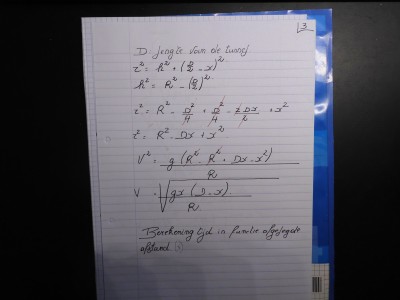 3
D: lengte van de tunnel
r² = h² + (D/2 - x)²
h² = R² - (D/2)²
r² = R² - D²/4 + D²/4 - 2Dx/2 + x²
r² = R² - Dx + x²
V² = g (R² - R² + Dx - x²) / R
V = √(gx (D - x) / R)
Berekening tijd in functie afgelegde
afstand